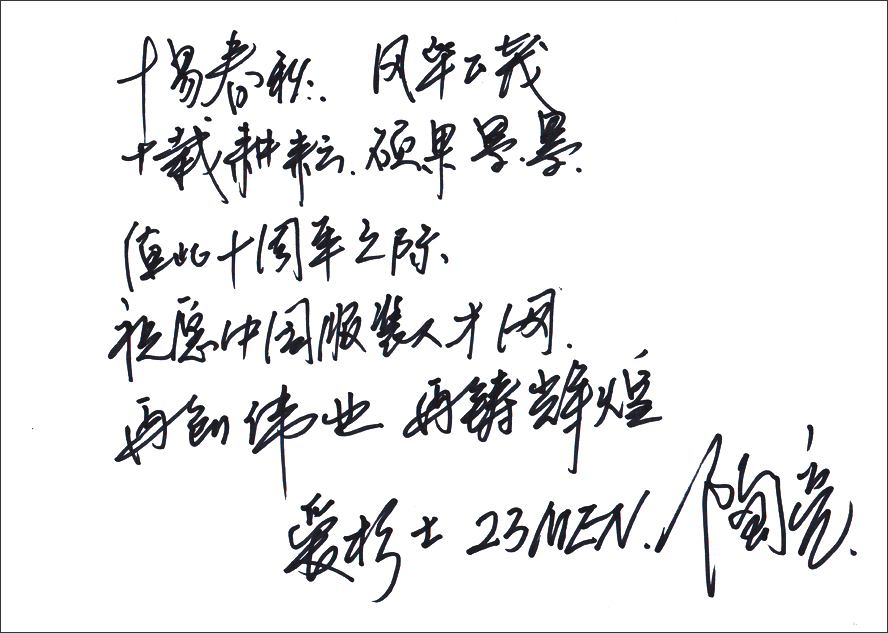 十易春秋. 风华正茂
十载耕耘. 硕果累累.
值此十周年之际、
祝愿中国服装人才网.
再创伟业 再铸辉煌
爱杉士 23MEN. 陶亮.